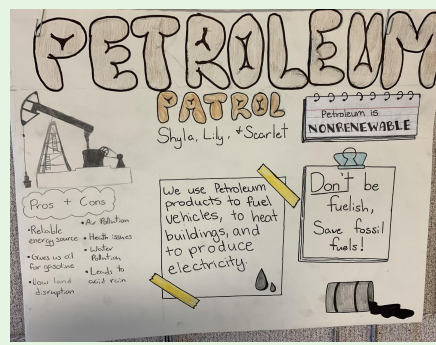 PETROLEUM
PATROL
Shyla, Lily, + Scarlet
Petroleum is
NONRENEWABLE
Pros + Cons
•Reliable
energy source
•Gives us oil
for gasoline
•Low land
disruption
•Air Pollution
•Health issues
•Water
Pollution
•Leads to
acid rain
We use Petroleum
products to fuel
vehicles, to heat
buildings, and
to produce
electricity.
Don't be
fuelish,
Save fossil
fuels!